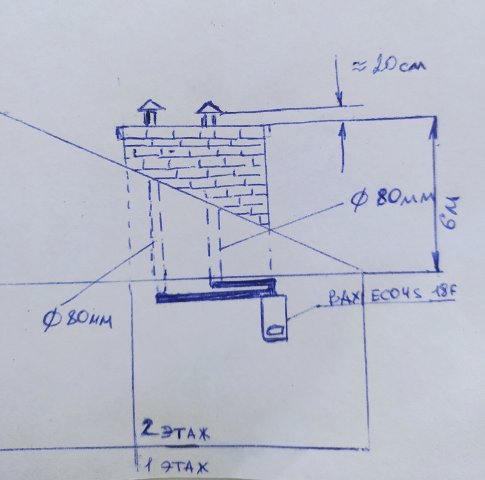 ≈ 20 см
Ф 80мм
6м
BAXI ECO4S 18F
Ф 80мм
2 ЭТАЖ
1 ЭТАЖ